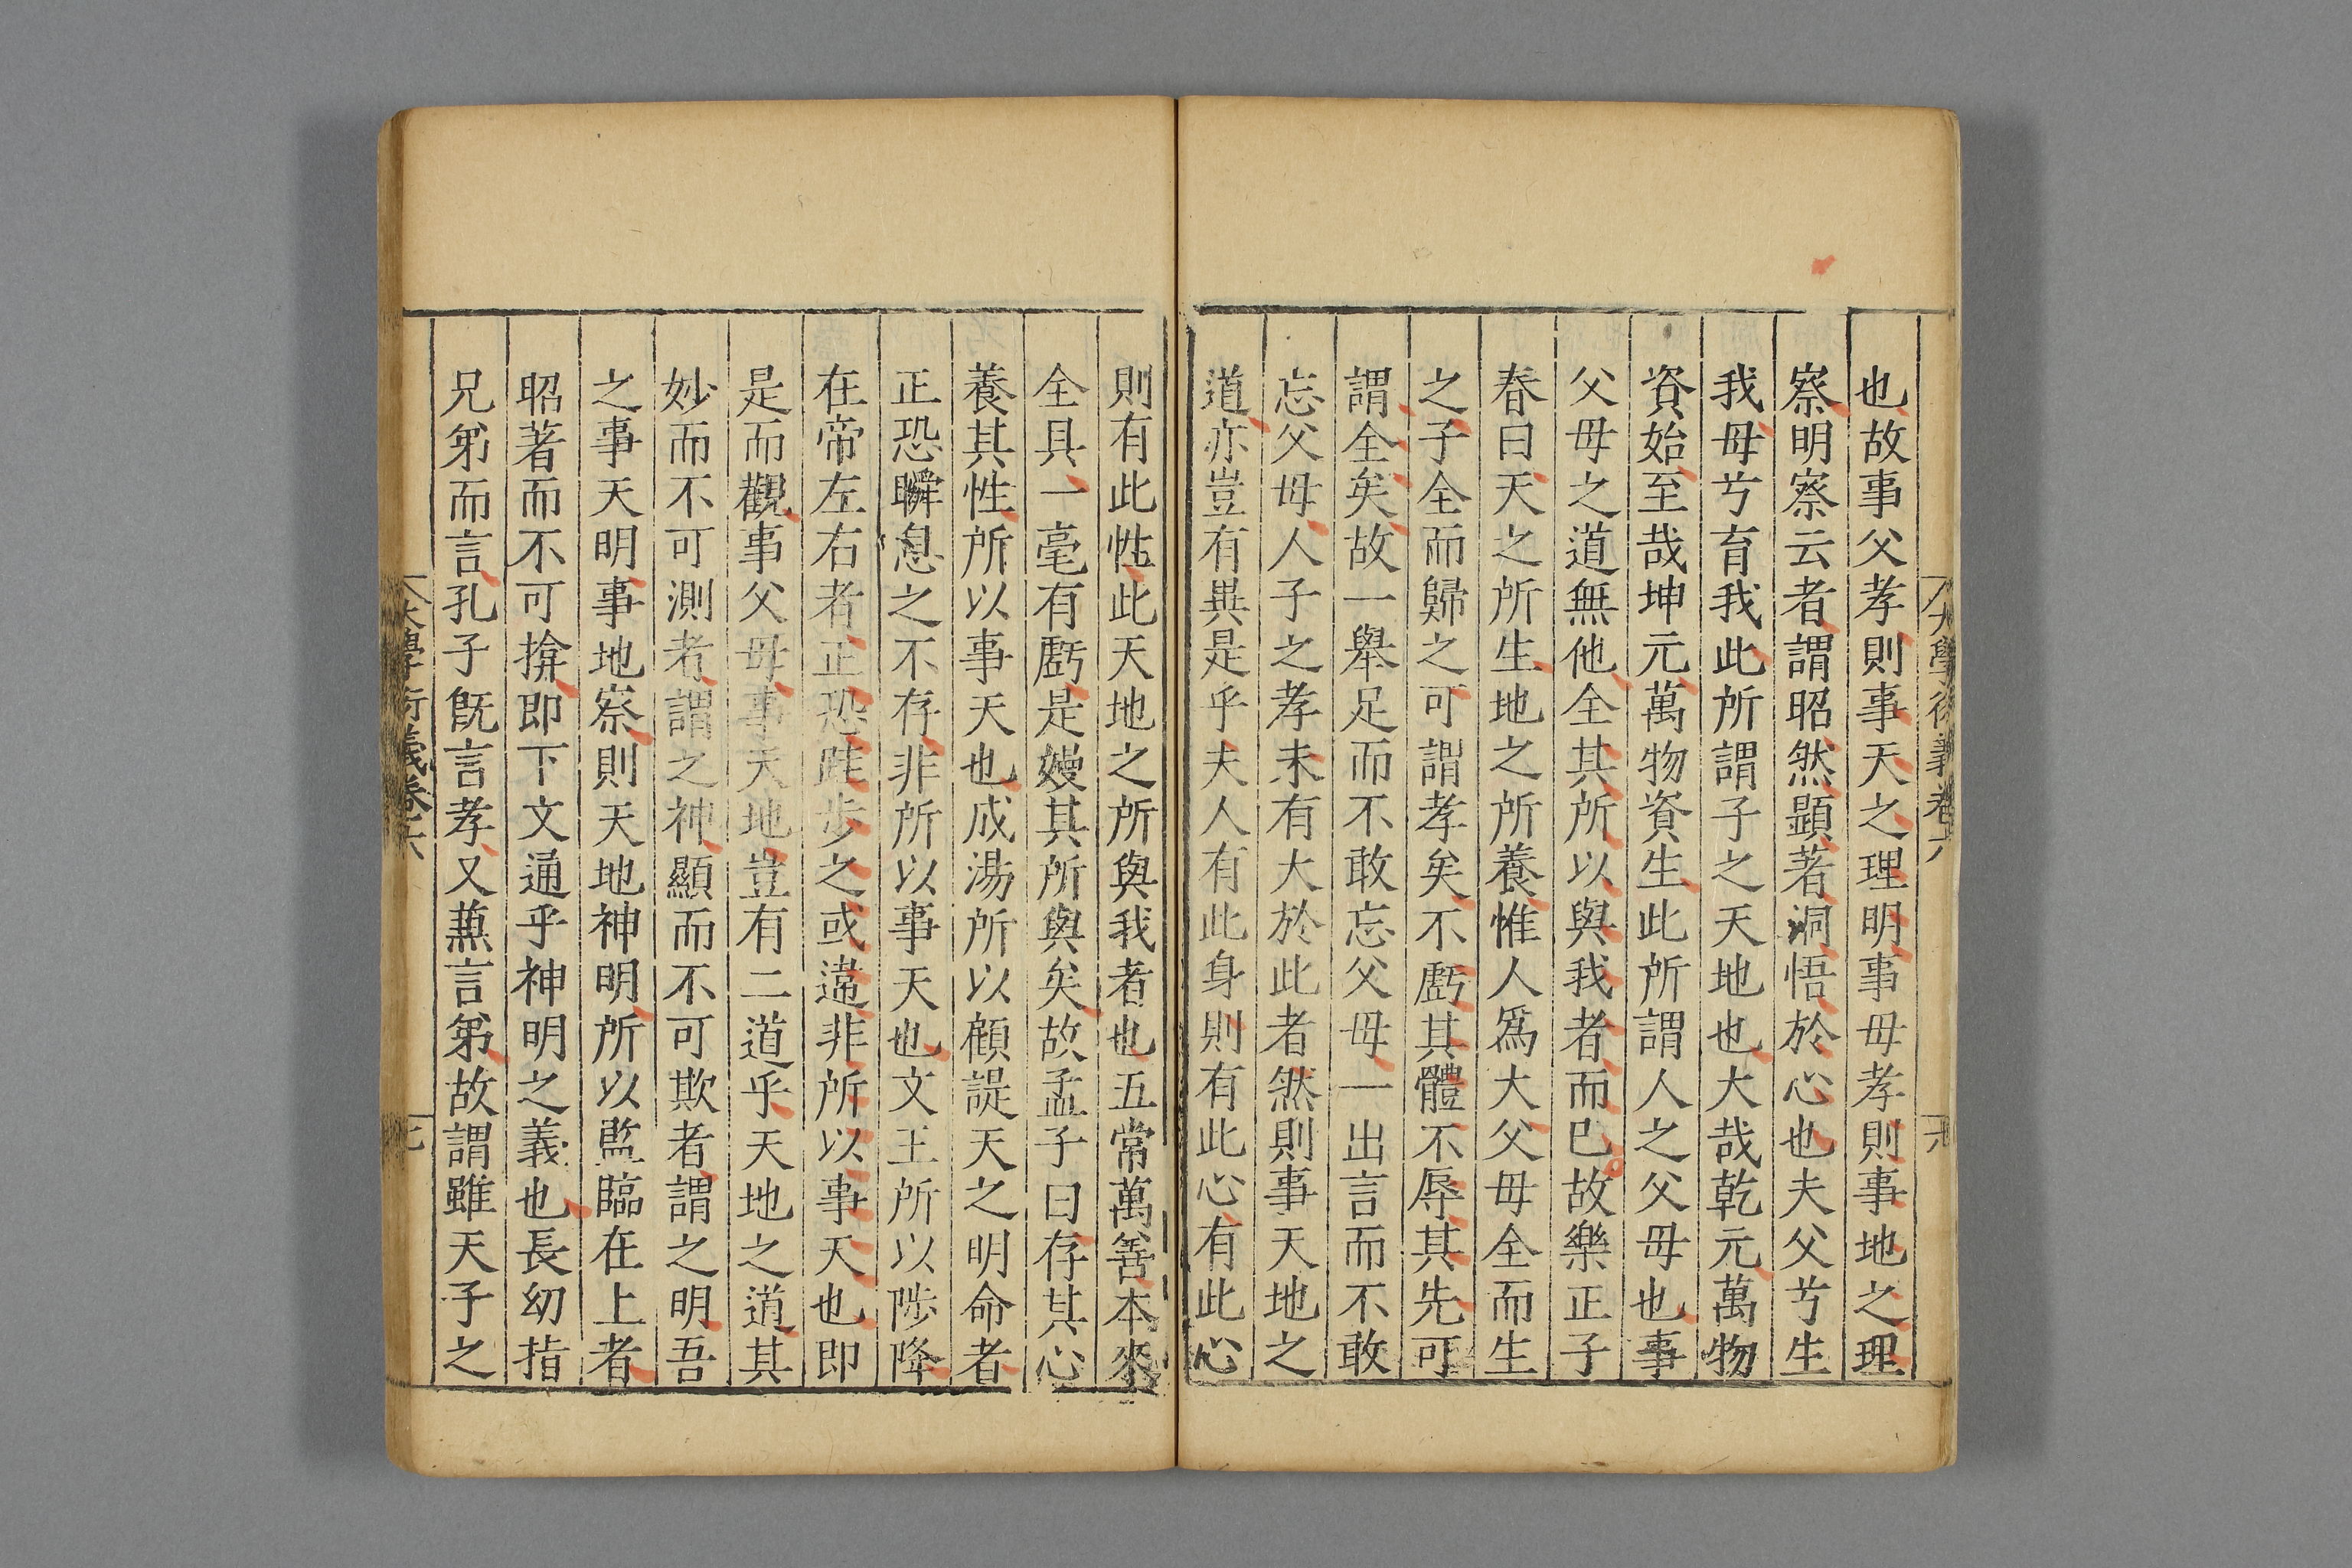 大學衍義卷六
六
也故事父孝則事天之理明事母孝則事地之理
察明察云者謂昭然顯著洞悟於心也夫父兮生
我母兮育我此所謂子之天地也大哉乾元萬物
資始至哉坤元萬物資生此所謂人之父母也事
父母之道無他全其所以與我者而已故樂正子
春曰天之所生地之所養惟人爲大父母全而生
之子全而歸之可謂孝矣不虧其體不辱其先可
謂全矣故一舉足而不敢忘父母一出言而不敢
忘父母人子之孝未有大於此者然則事天地之
道亦豈有異是乎夫人有此身則有此心有此心
則有此性此天地之所與我者也五常萬善本來
全具一毫有虧是嫚其所與矣故孟子曰存其心
養其性所以事天也成湯所以顧諟天之明命者
正恐瞬息之不存非所以事天也文王所以陟降
在帝左右者正恐跬步之或違非所以事天也即
是而觀事父母事天地豈有二道乎天地之道其
妙而不可測者謂之神顯而不可欺者謂之明吾
之事天明事地察則天地神明所以監臨在上者
昭著而不可揜即下文通乎神明之義也長幼指
兄弟而言孔子旣言孝又蕪言弟故謂雖天子之
大學衍義卷六
七